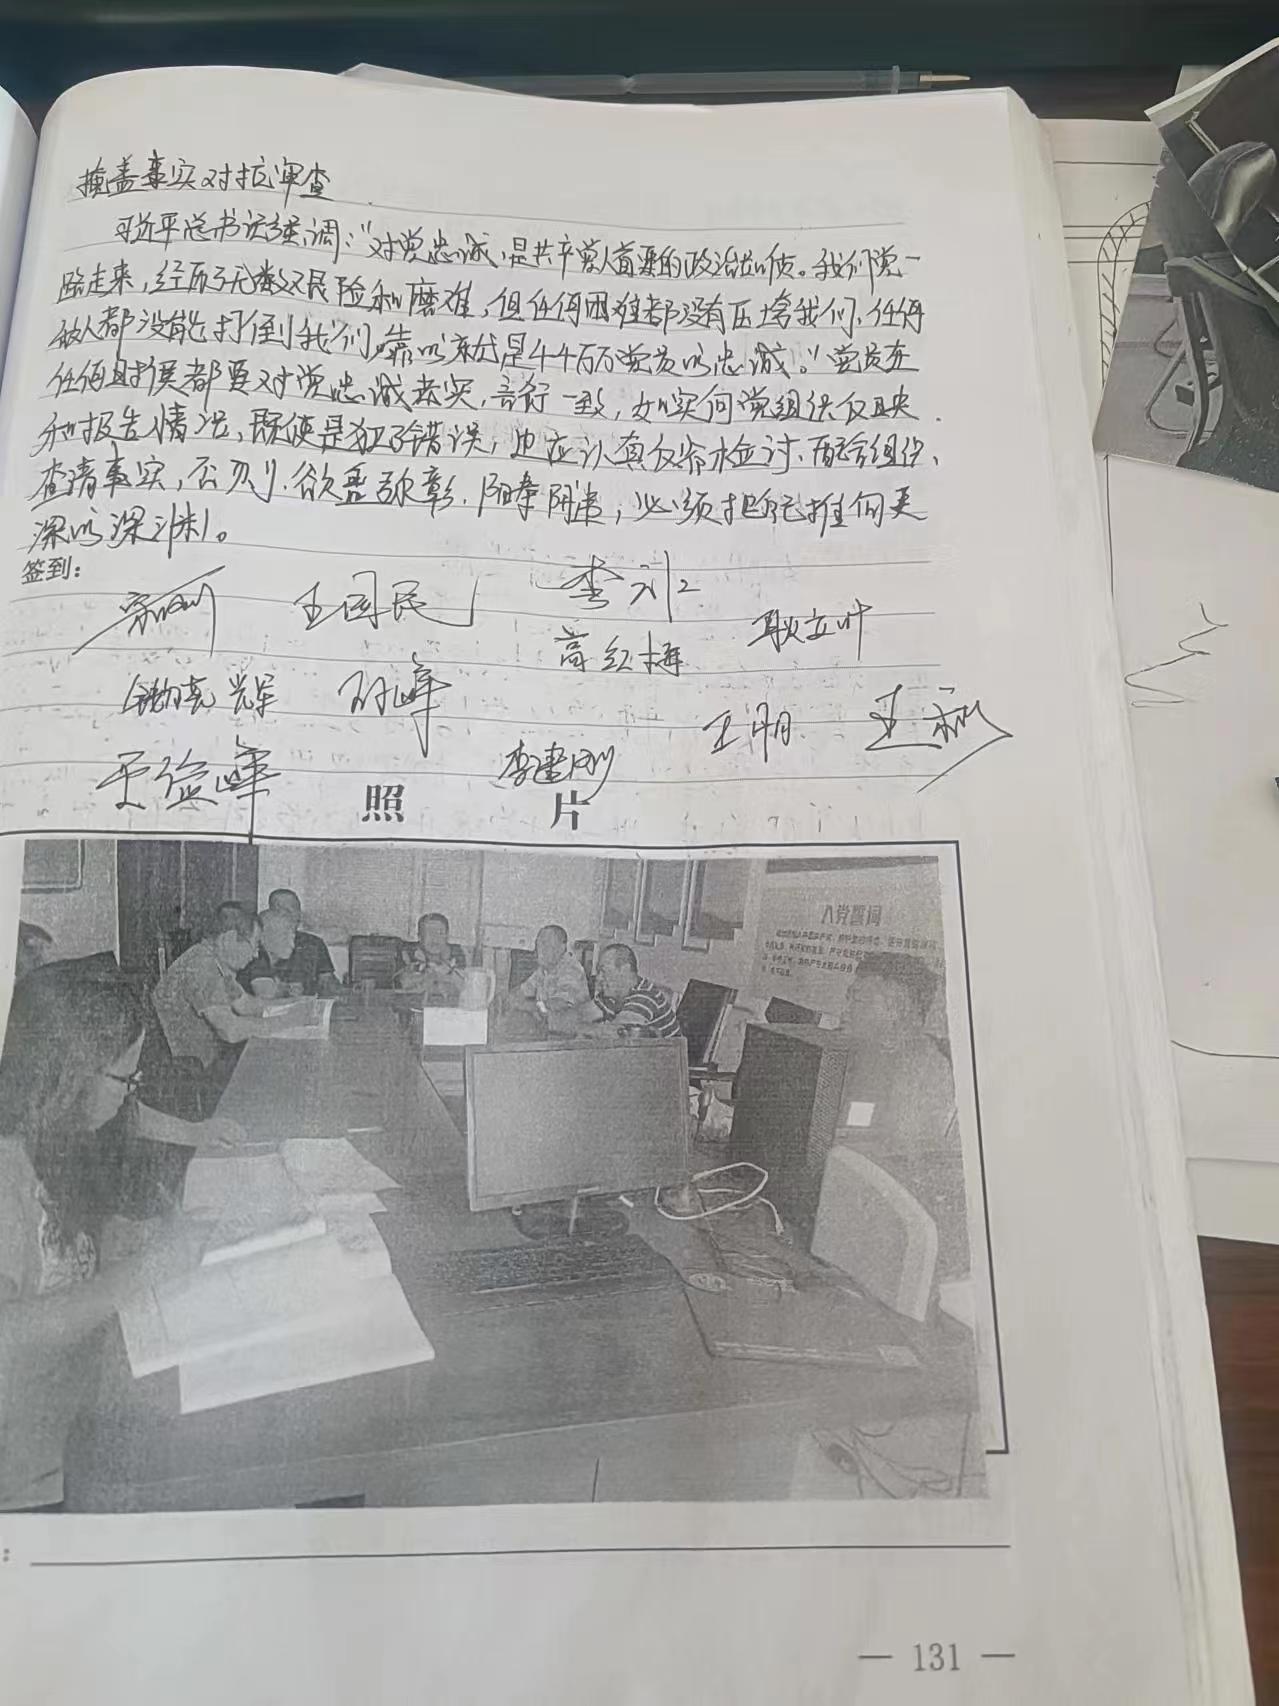 掩盖事实对抗审查
习近平总书记强调:“对党忠诚,是共产党人首要的政治品质。我们党一
路走来,经历了无数艰险和磨难,但任何困难都没有压垮我们,任何
敌人都没能打倒我们,靠的就是千千万万党员的忠诚。”党员在
任何时候都要对党忠诚老实,言行一致,如实向党组织反映
和报告情况,既使是犯了错误,也应认真反省检讨、配合组织、
查清事实,否则,欲盖弥彰,阳奉阴违,必须把自己推向更
深的深渊。
签到:
王国民
高红梅
耿立叶
孙峰
王明
于益峰
李建刚
照 片
入党誓词
— 131 —